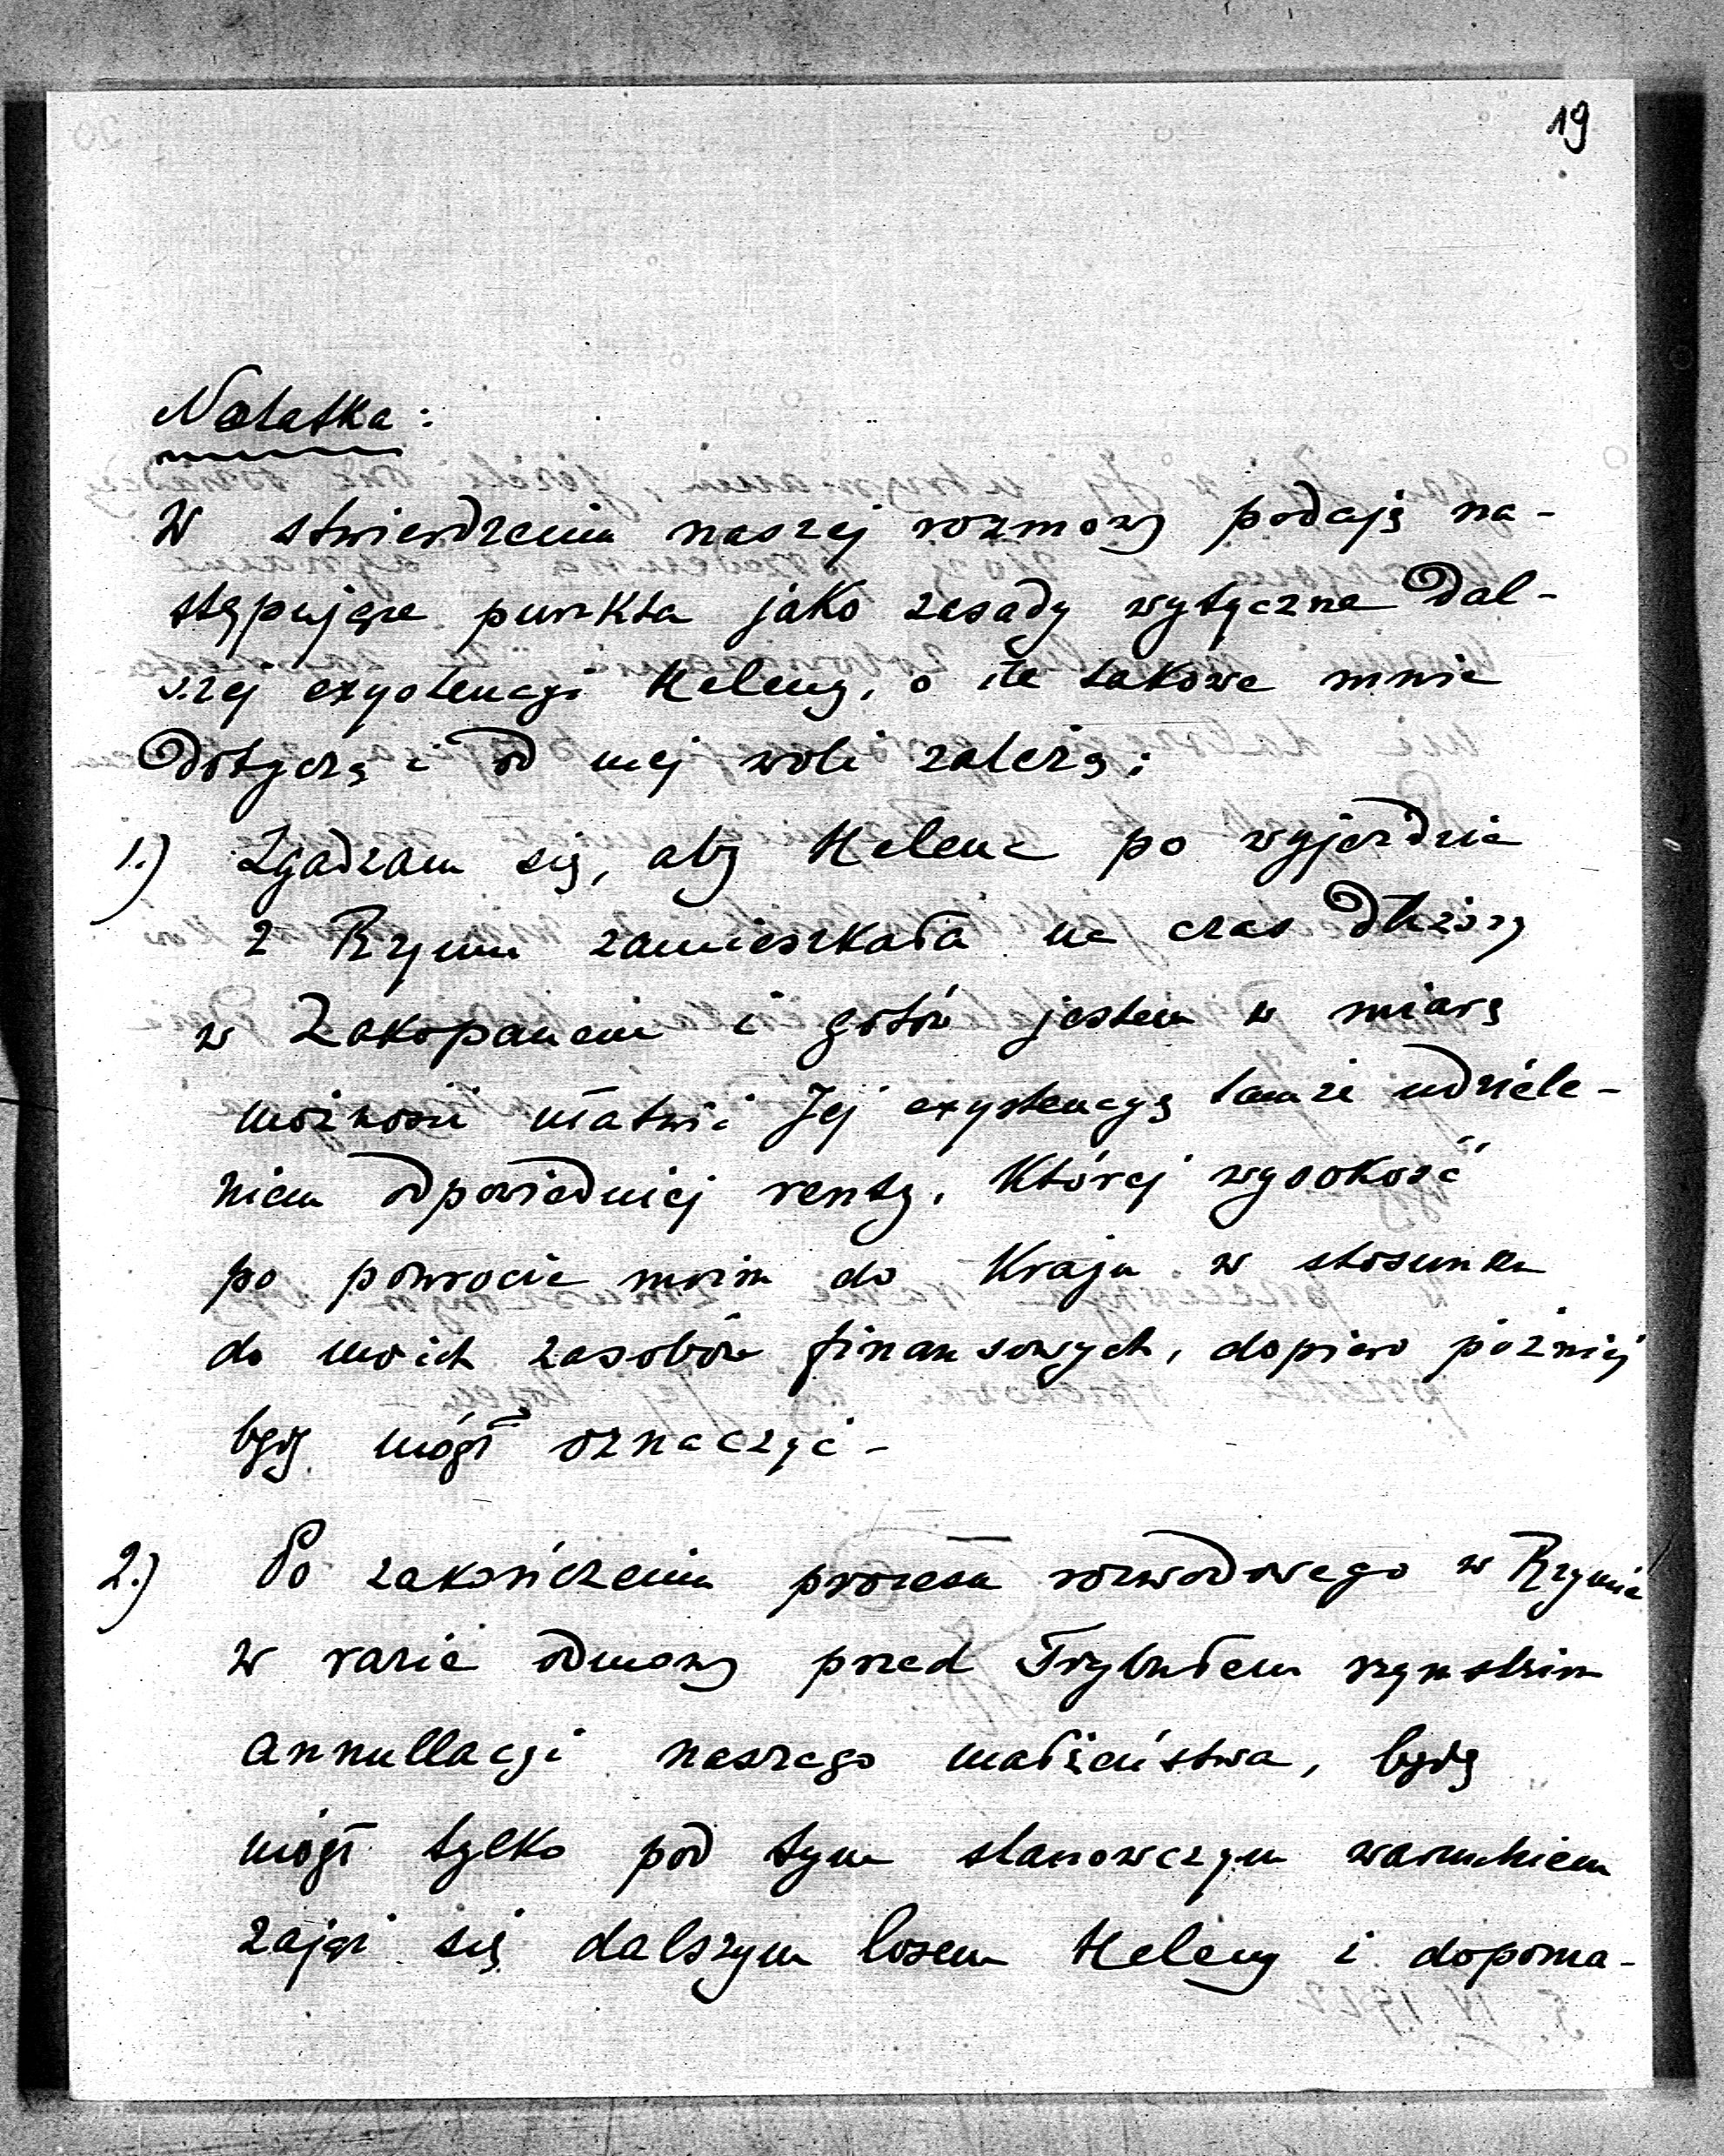 19
Notatka:
W stwierdzeniu naszej rozmowy podaję na-
stępujące punkta jako zasady wytyczne dal-
szej exystencyi Heleny, o ile takowe mnie
dotyczą i od mej woli zależą:
1.) Zgadzam się, aby Helena po wyjeździe
z Rzymu zamieszkała na czas dłuższy
w Zakopanem i gotów jestem w miarę
możności ułatwić Jej exystencyę tamże udziele-
niem odpowiedniej renty, której wysokość
po powrocie moim do Kraju w stosunku
do moich zasobów finansowych, dopiero później
będę mógł oznaczyć -
2.) Po zakończeniu procesu rozwodowego w Rzymie
w razie odmowy przed Trybunałem rzymskim
annullacyi naszego małżeństwa, będę
mógł tylko pod tym stanowczym warunkiem
zająć się dalszym losem Heleny i dopoma-